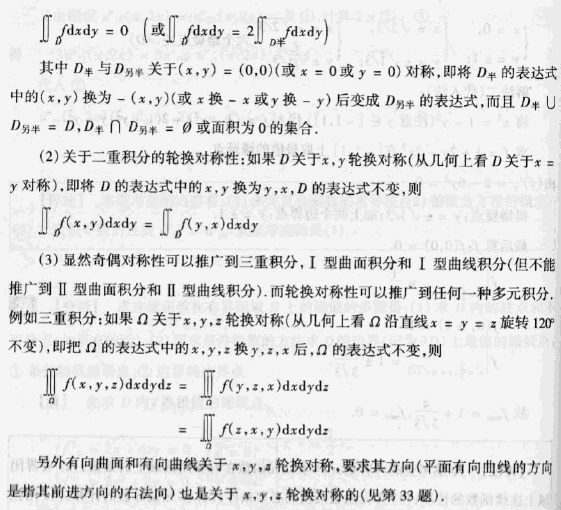 ∬_D fdxdy = 0 (或∬_D fdxdy = 2∬_{D半} fdxdy)
其中 D半 与 D另半 关于(x,y) = (0,0)(或 x = 0 或 y = 0) 对称,即将 D半 的表达式
中的(x,y) 换为 - (x,y)(或 x 换 - x 或 y 换 - y) 后变成 D另半 的表达式,而且 D半 ∪
D另半 = D,D半 ∩ D另半 = Ø 或面积为 0 的集合.
(2) 关于二重积分的轮换对称性:如果 D 关于x,y 轮换对称(从几何上看 D 关于 x =
y 对称),即将 D 的表达式中的 x,y 换为 y,x,D 的表达式不变,则
∬_D f(x,y)dxdy = ∬_D f(y,x)dxdy
(3) 显然奇偶对称性可以推广到三重积分,Ⅰ 型曲面积分和 Ⅰ 型曲线积分(但不能
推广到 Ⅱ 型曲面积分和 Ⅱ 型曲线积分).而轮换对称性可以推广到任何一种多元积分.
例如三重积分:如果 Ω 关于 x,y,z 轮换对称(从几何上看 Ω 沿直线 x = y = z 旋转 120°
不变),即把 Ω 的表达式中的 x,y,z 换 y,z,x 后,Ω 的表达式不变,则
∭_Ω f(x,y,z)dxdydz = ∭_Ω f(y,z,x)dxdydz
= ∭_Ω f(z,x,y)dxdydz
另外有向曲面和有向曲线关于 x,y,z 轮换对称,要求其方向(平面有向曲线的方向
是指其前进方向的右法向) 也是关于 x,y,z 轮换对称的(见第 33 题).